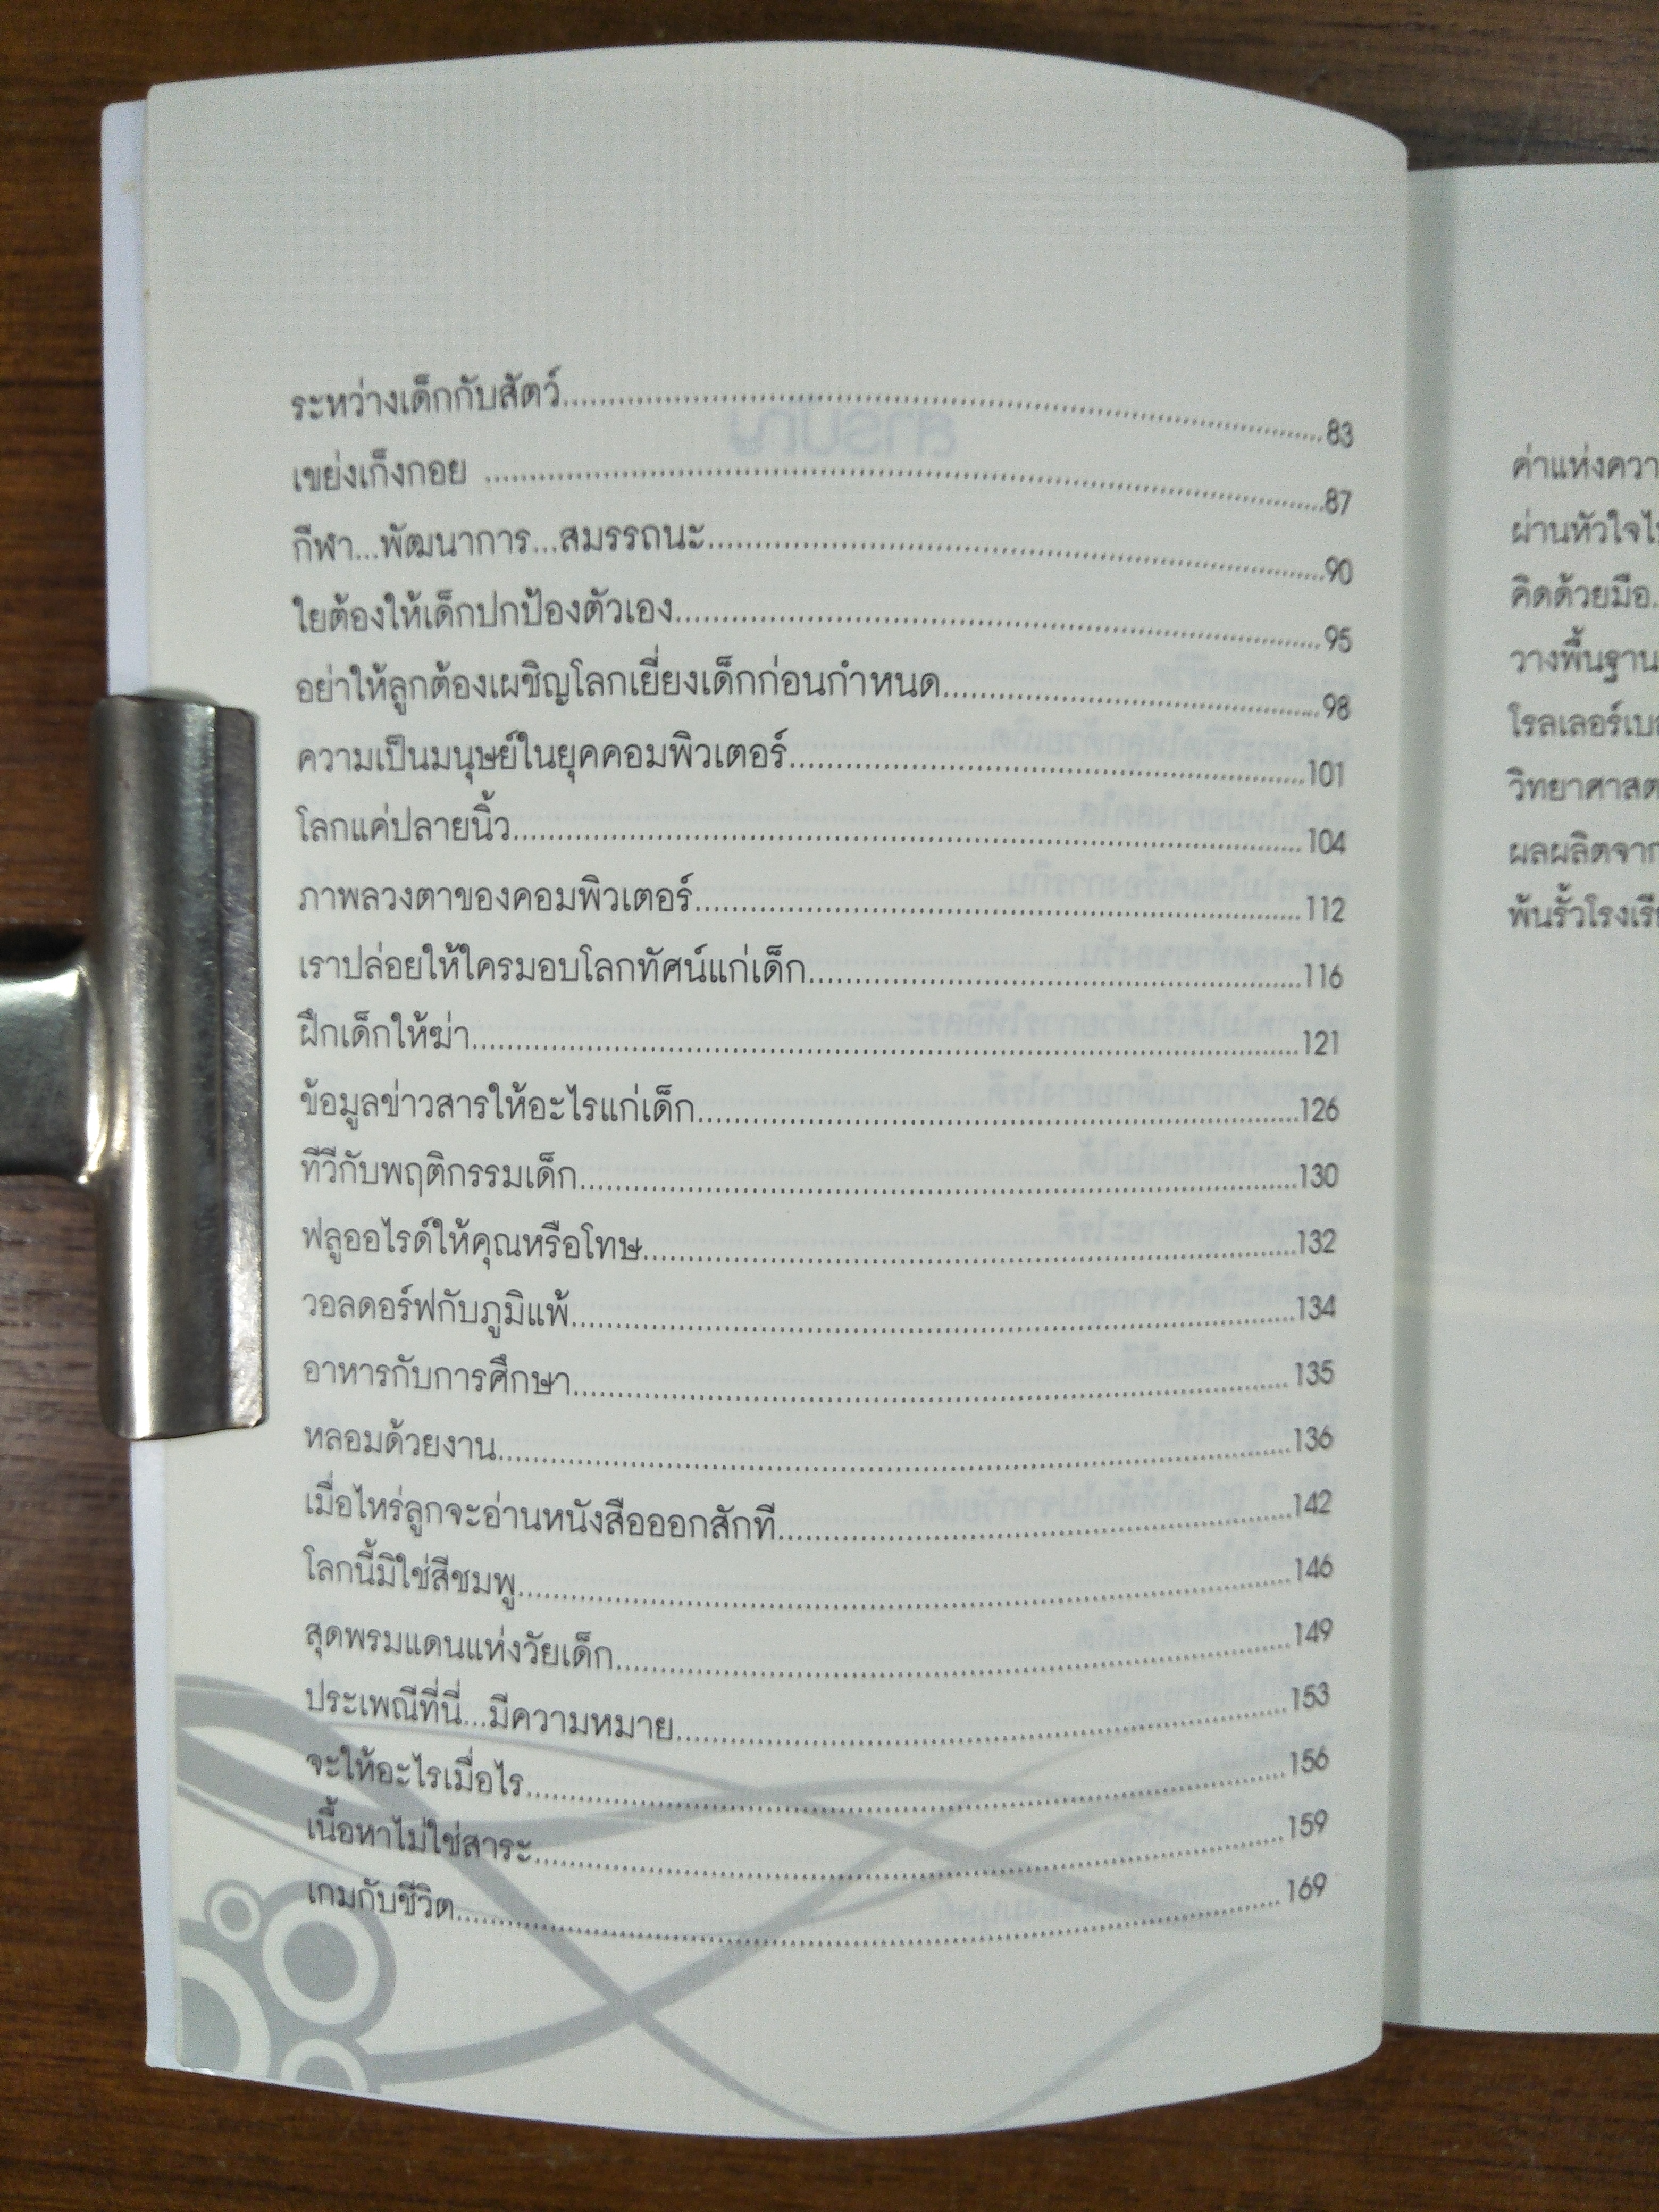 ระหว่างเด็กกับสัตว์........................83
เขย่งเก็งกอย ........................87
กีฬา...พัฒนาการ...สมรรถนะ........................90
ใยต้องให้เด็กปกป้องตัวเอง........................95
อย่าให้ลูกต้องเผชิญโลกเยี่ยงเด็กก่อนกำหนด........................98
ความเป็นมนุษย์ในยุคคอมพิวเตอร์........................101
โลกแค่ปลายนิ้ว........................104
ภาพลวงตาของคอมพิวเตอร์........................112
เราปล่อยให้ใครมอบโลกทัศน์แก่เด็ก........................116
ฝึกเด็กให้ฆ่า........................121
ข้อมูลข่าวสารให้อะไรแก่เด็ก........................126
ทีวีกับพฤติกรรมเด็ก........................130
ฟลูออไรด์ให้คุณหรือโทษ........................132
วอลดอร์ฟกับภูมิแพ้........................134
อาหารกับการศึกษา........................135
หลอมด้วยงาน........................136
เมื่อไหร่ลูกจะอ่านหนังสือออกสักที........................142
โลกนี้มิใช่สีชมพู........................146
สุดพรมแดนแห่งวัยเด็ก........................149
ประเพณีที่นี่...มีความหมาย........................153
จะให้อะไรเมื่อไร........................156
เนื้อหาไม่ใช่สาระ........................159
เกมกับชีวิต........................169
ค่าแห่งควา
ผ่านหัวใจไ
คิดด้วยมือ.
วางพื้นฐาน
โรลเลอร์เบ
วิทยาศาสต
ผลผลิตจาก
พ้นรั้วโรงเรี